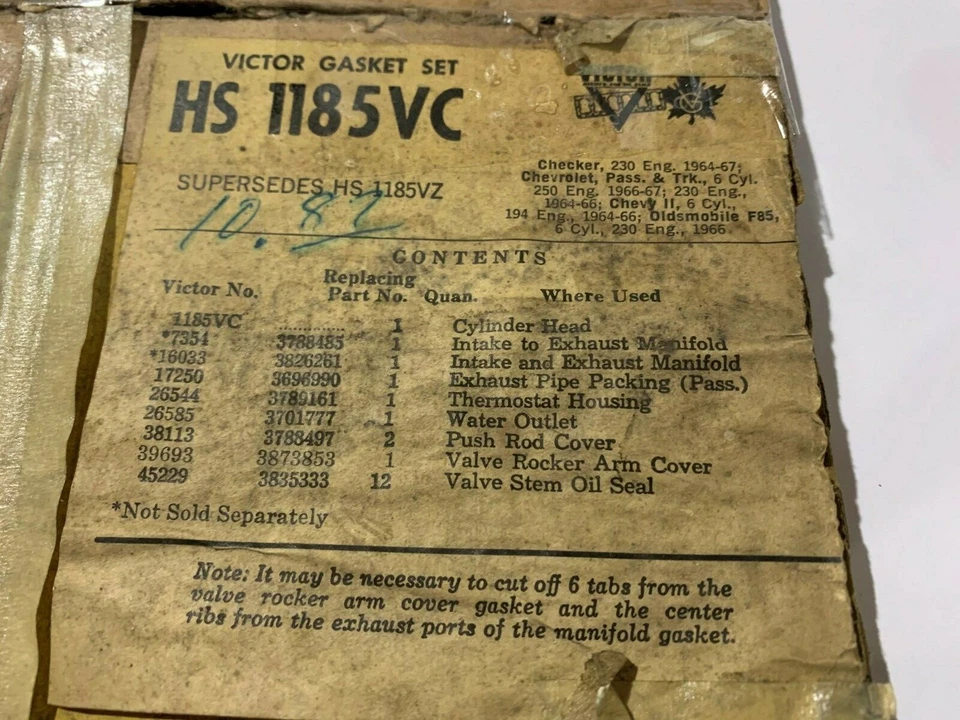 VICTOR GASKET SET
HS 1185VC
VICTOR
SUPERSEDES HS 1185VZ
10.82
Checker, 230 Eng. 1964-67;
Chevrolet, Pass. & Trk., 6 Cyl.
250 Eng. 1966-67; 230 Eng.,
1964-66; Chevy II, 6 Cyl.,
194 Eng., 1964-66; Oldsmobile F85,
6 Cyl., 230 Eng., 1966
CONTENTS
Victor No. Replacing Part No. Quan. Where Used
1185VC ............ 1 Cylinder Head
*7354 3788485 1 Intake to Exhaust Manifold
*16033 3826261 1 Intake and Exhaust Manifold
17250 3696990 1 Exhaust Pipe Packing (Pass.)
26544 3789161 1 Thermostat Housing
26585 3701777 1 Water Outlet
38113 3788497 2 Push Rod Cover
39693 3873853 1 Valve Rocker Arm Cover
45229 3835333 12 Valve Stem Oil Seal
*Not Sold Separately
Note: It may be necessary to cut off 6 tabs from the
valve rocker arm cover gasket and the center
ribs from the exhaust ports of the manifold gasket.